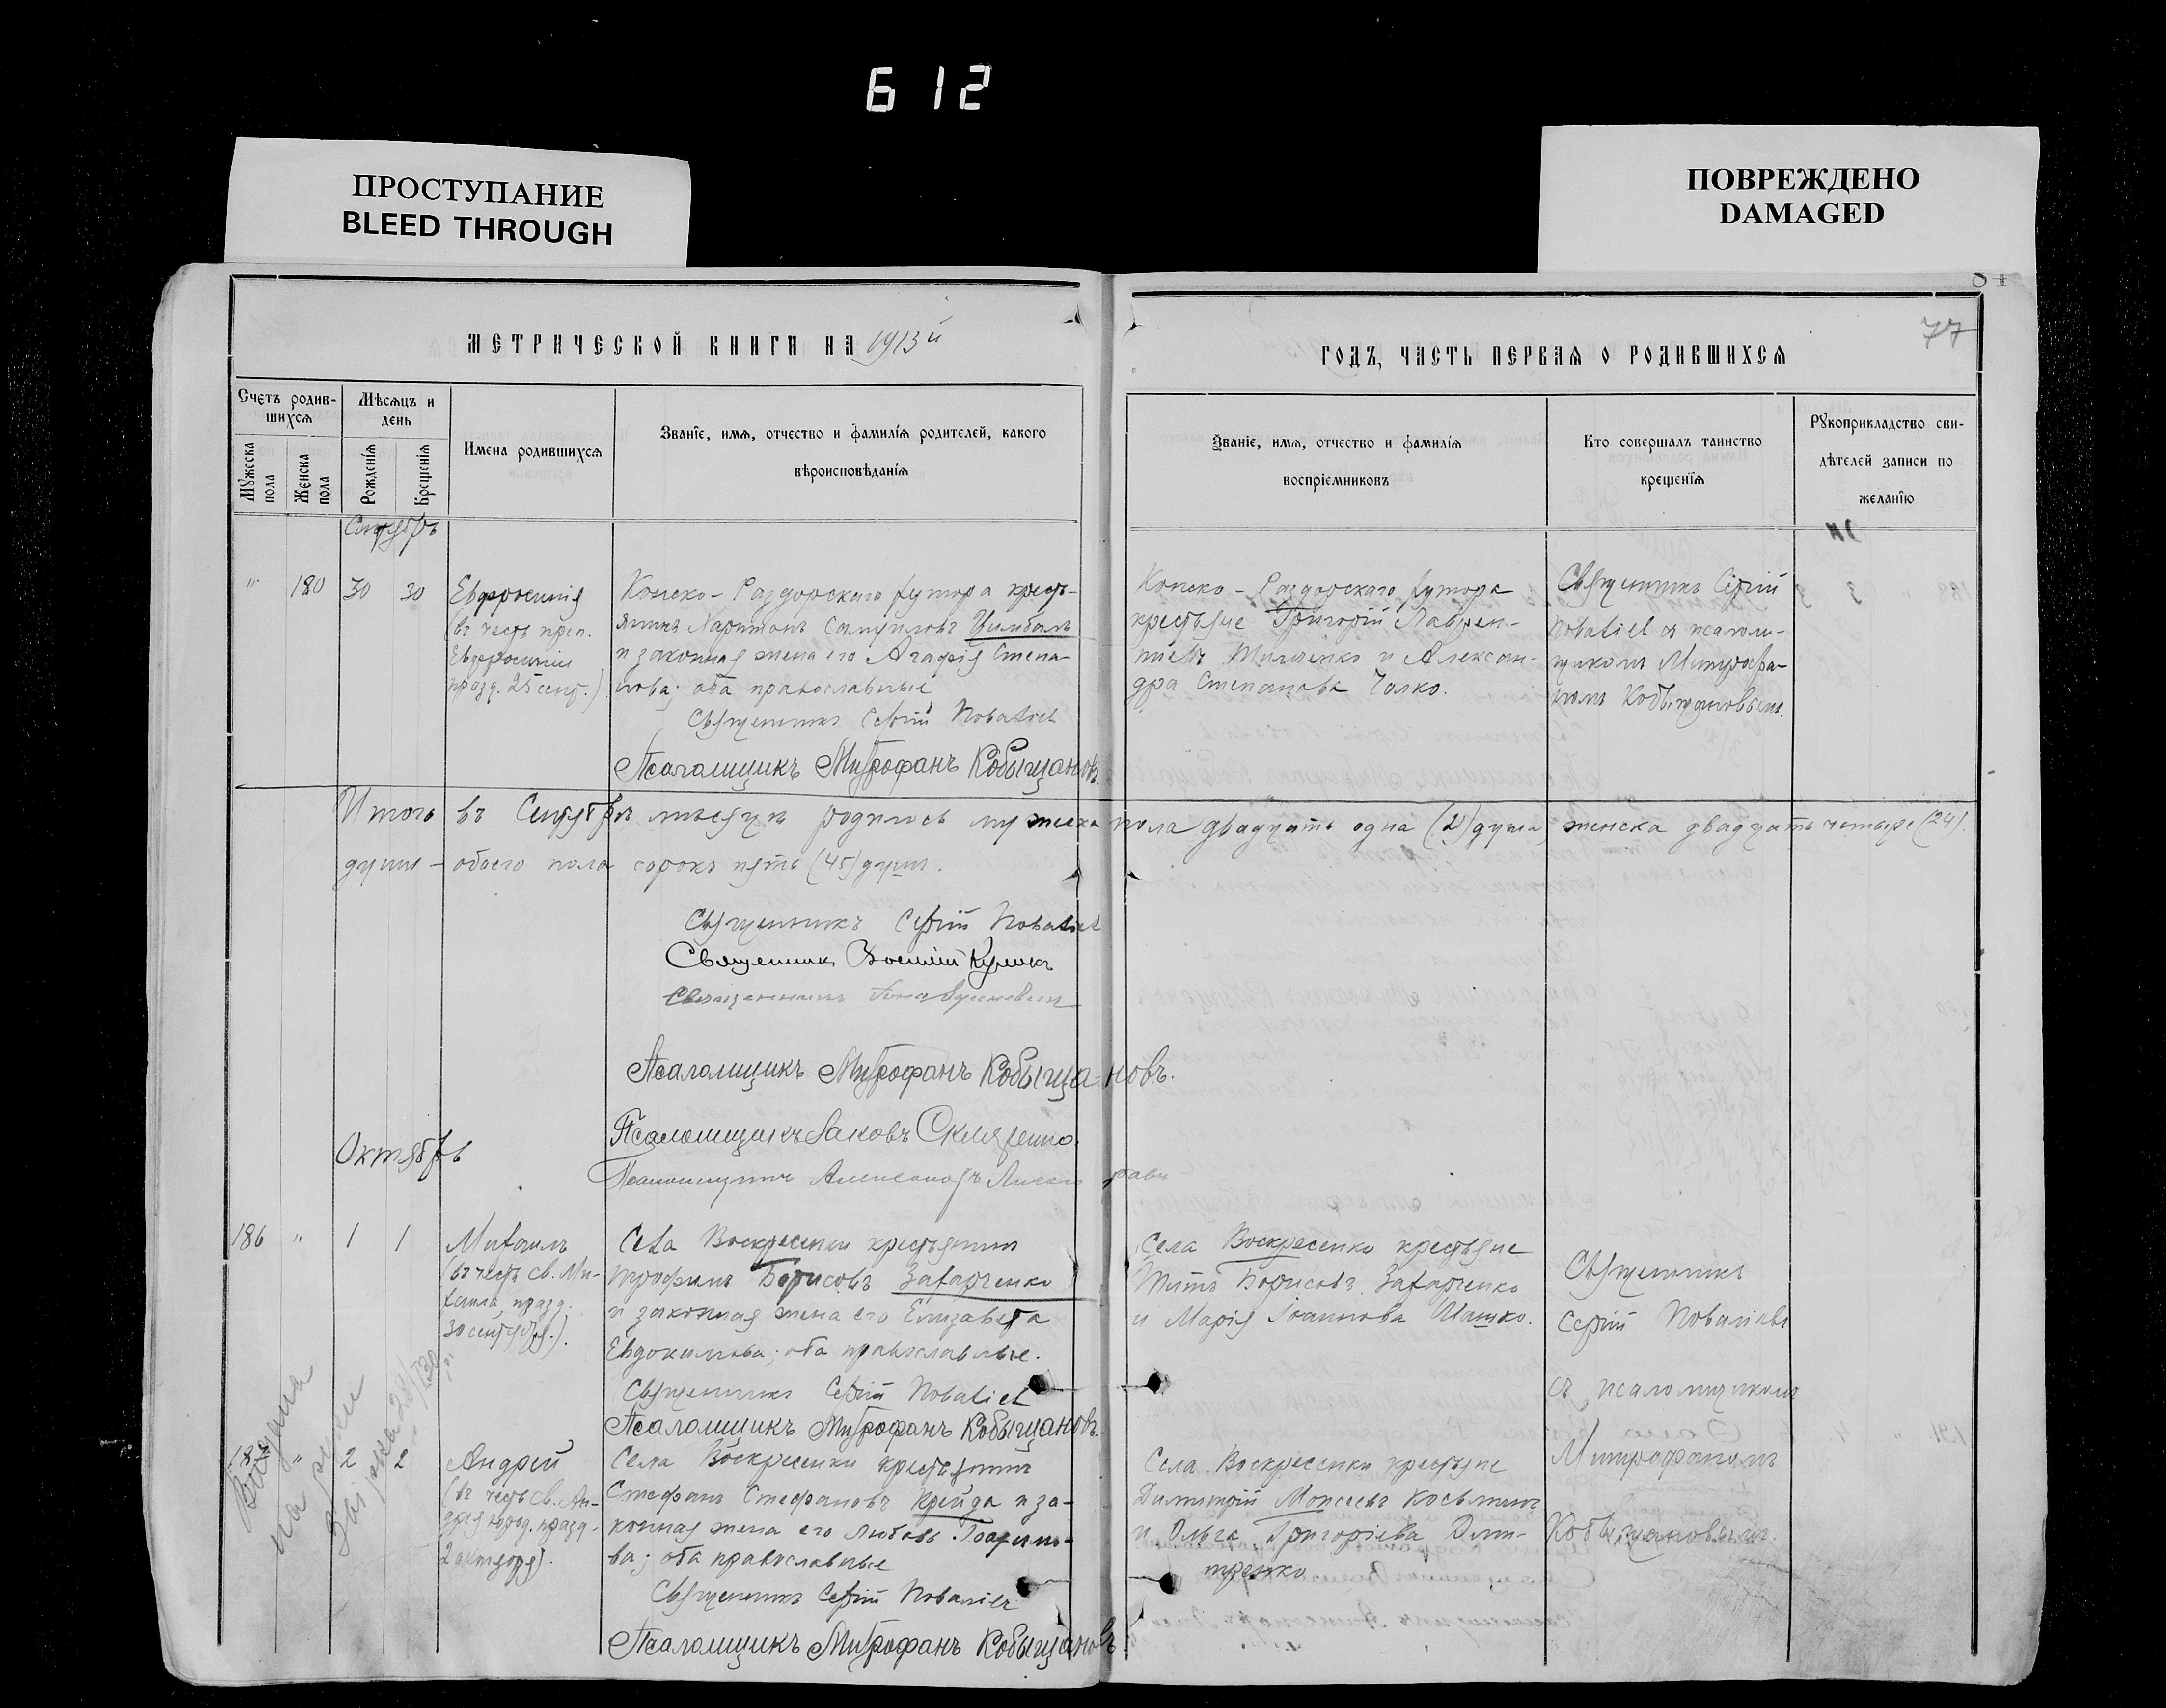 612
ПРОСТУПАНИЕ
BLEED THROUGH
ПОВРЕЖДЕНО
DAMAGED
МЕТРИЧЕСКОЙ КНИГИ НА 1913й
ГОДЪ, ЧАСТЬ ПЕРВАЯ О РОДИВШИХСЯ
77
Счетъ родив-
шихся
Мужеска пола
Женска пола
Мѣсяцъ и
день
Рожденія
Крещенія
Имена родившихся
Званіе, имя, отчество и фамилія родителей, какого
вѣроисповѣданія
Званіе, имя, отчество и фамилія
воспріемниковъ
Кто совершалъ таинство
крещенія
Рукоприкладство сви-
дѣтелей записи по
желанію
Сентябрь
" 180 30 30
Евфросинія
(въ честь преп.
Евфросиніи
празд. 25 сент.)
Конско-Раздорскаго хутора кресть-
янинъ Харитонъ Самуиловъ Цымбалъ
и законная жена его Агафія Степа-
нова; оба православные
Священникъ Сергій
Псаломщикъ Митрофанъ Кобыщановъ.
Конско-Раздорскаго хутора
крестьяне Григорій Лаврен-
тіевъ и Алексан-
дра Степанова Чалко.
Священникъ Сергій
съ псалом-
щикомъ Митрофа-
номъ Кобыщановымъ.
Итого въ Сентябрѣ мѣсяцѣ родилось мужеска пола двадцать одна душа, женска двадцать четыре (24)
души - обоего пола сорокъ пять (45) душъ.
Священникъ Сергій
Священникъ
Священникъ
Псаломщикъ Митрофанъ Кобыщановъ.
Псаломщикъ Іаковъ Скляренко.
Псаломщикъ Александръ
Октябрь
186 " 1 1
Михаилъ
(въ честь св. Ми-
хаила празд.
30 сентября).
Села Воскресенки крестьянинъ
Трофимъ Борисовъ Захарченко
и законная жена его Елизавета
Евдокимова; оба православные.
Священникъ Сергій
Псаломщикъ Митрофанъ Кобыщановъ.
Села Воскресенки крестьяне
Титъ Борисовъ Захарченко
и Марія Іоаннова Шашко.
Священникъ
Сергій Поваліевъ
съ псаломщикомъ
Митрофаномъ
Кобыщановымъ.
187 " 2 2
Андрей
(въ честь св. Ан-
дрея юрод. празд.
2 октября).
Села Воскресенки крестьянинъ
Стефанъ Стефановъ Крейда и за-
конная жена его Любовь
ва; оба православные
Священникъ Сергій Поваліевъ
Псаломщикъ Митрофанъ Кобыщановъ.
Села Воскресенки крестьяне
Димитрій Моисеевъ Косьминъ
и Ольга Григоріева Дми-
тренко.
Выдана
на руки